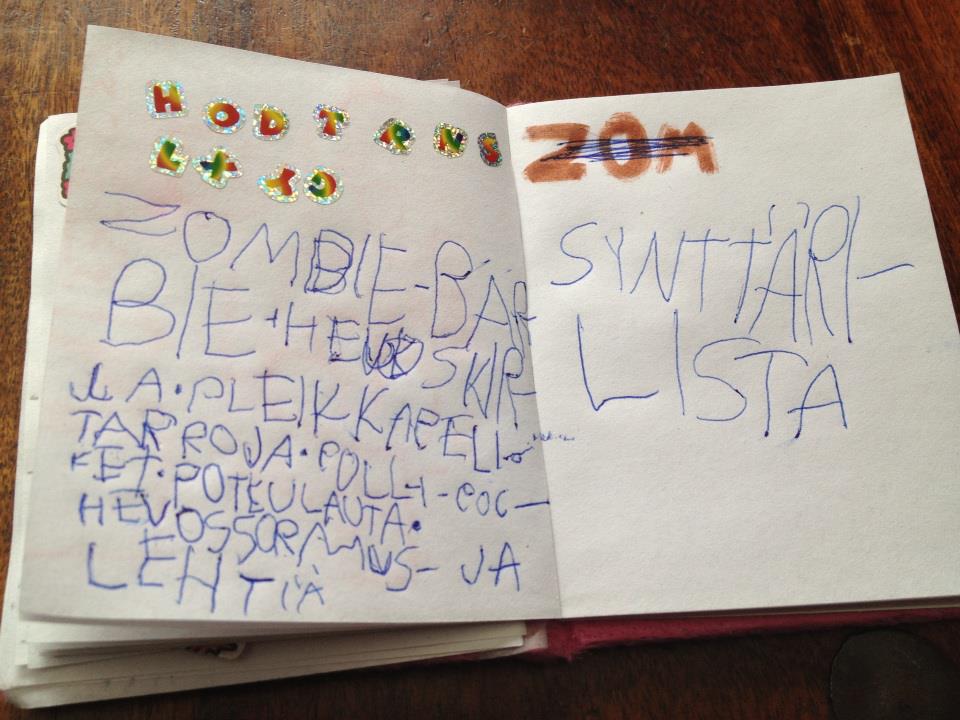 HODTRNS
LXYJ
ZOMBIE-BÄR
BIE•HEVOSKIR
JA•PLEIKKAPELI•
TARROJA•POLLY-POC-
KET•POTKULAUTA•
HEVOSSORMUS- JA
LEHTIÄ
ZOM
SYNTTÄRI-
LISTA